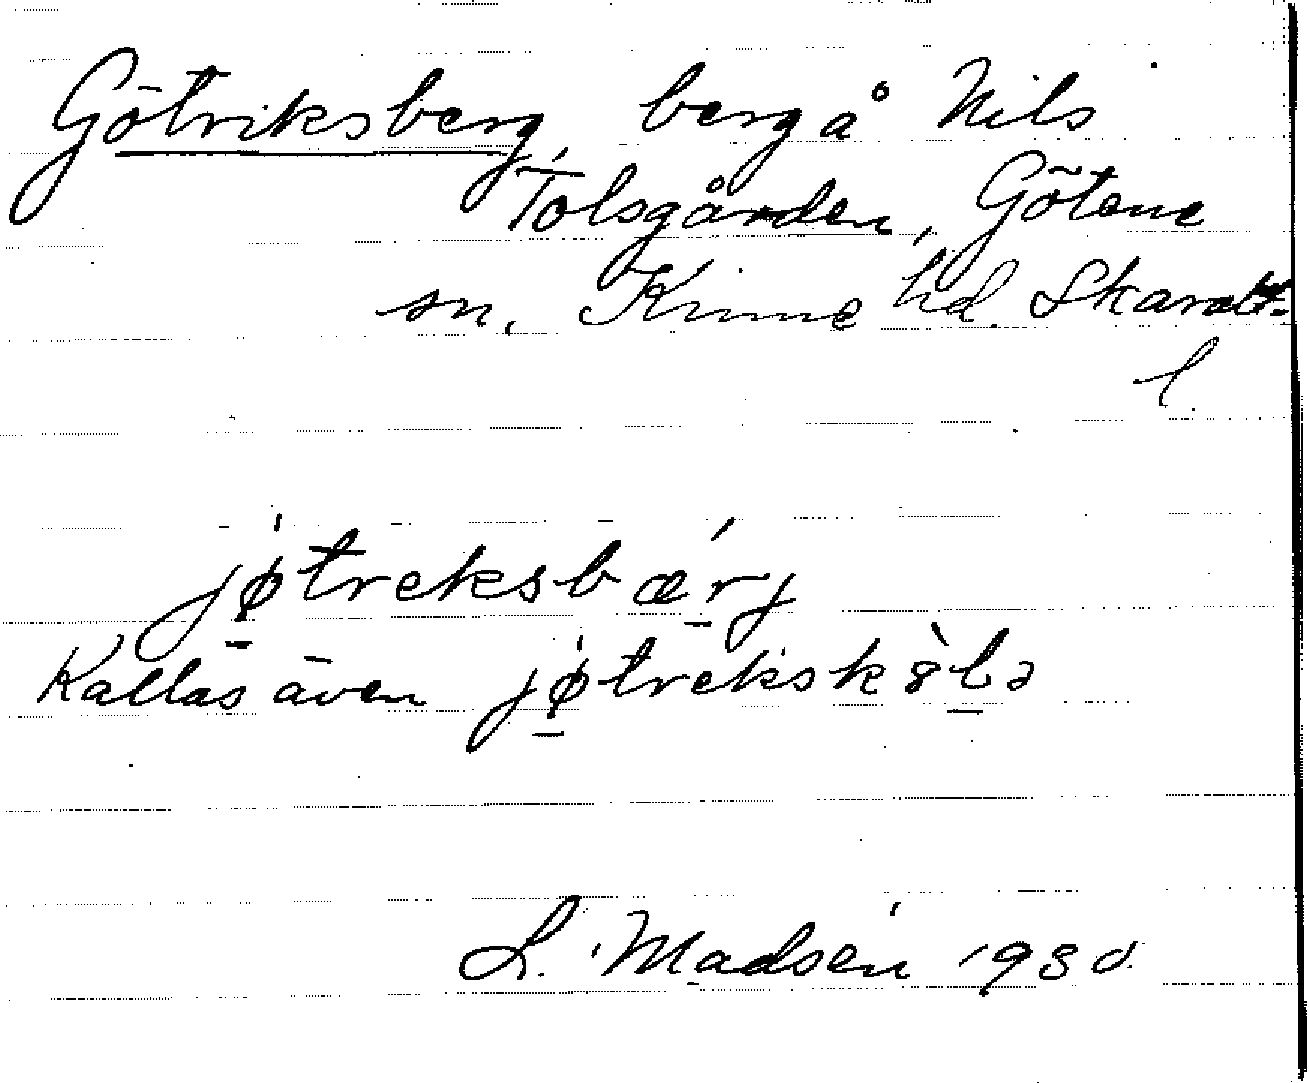 Götriksberg, berg å Nils
Tolsgården, Götene
sn. Kinne hd. Skarab.
l.
jǿ̱treksbǽ̱rj
Kallas även jǿ̱treksk8̀ḻə
L. Madsén 1930.